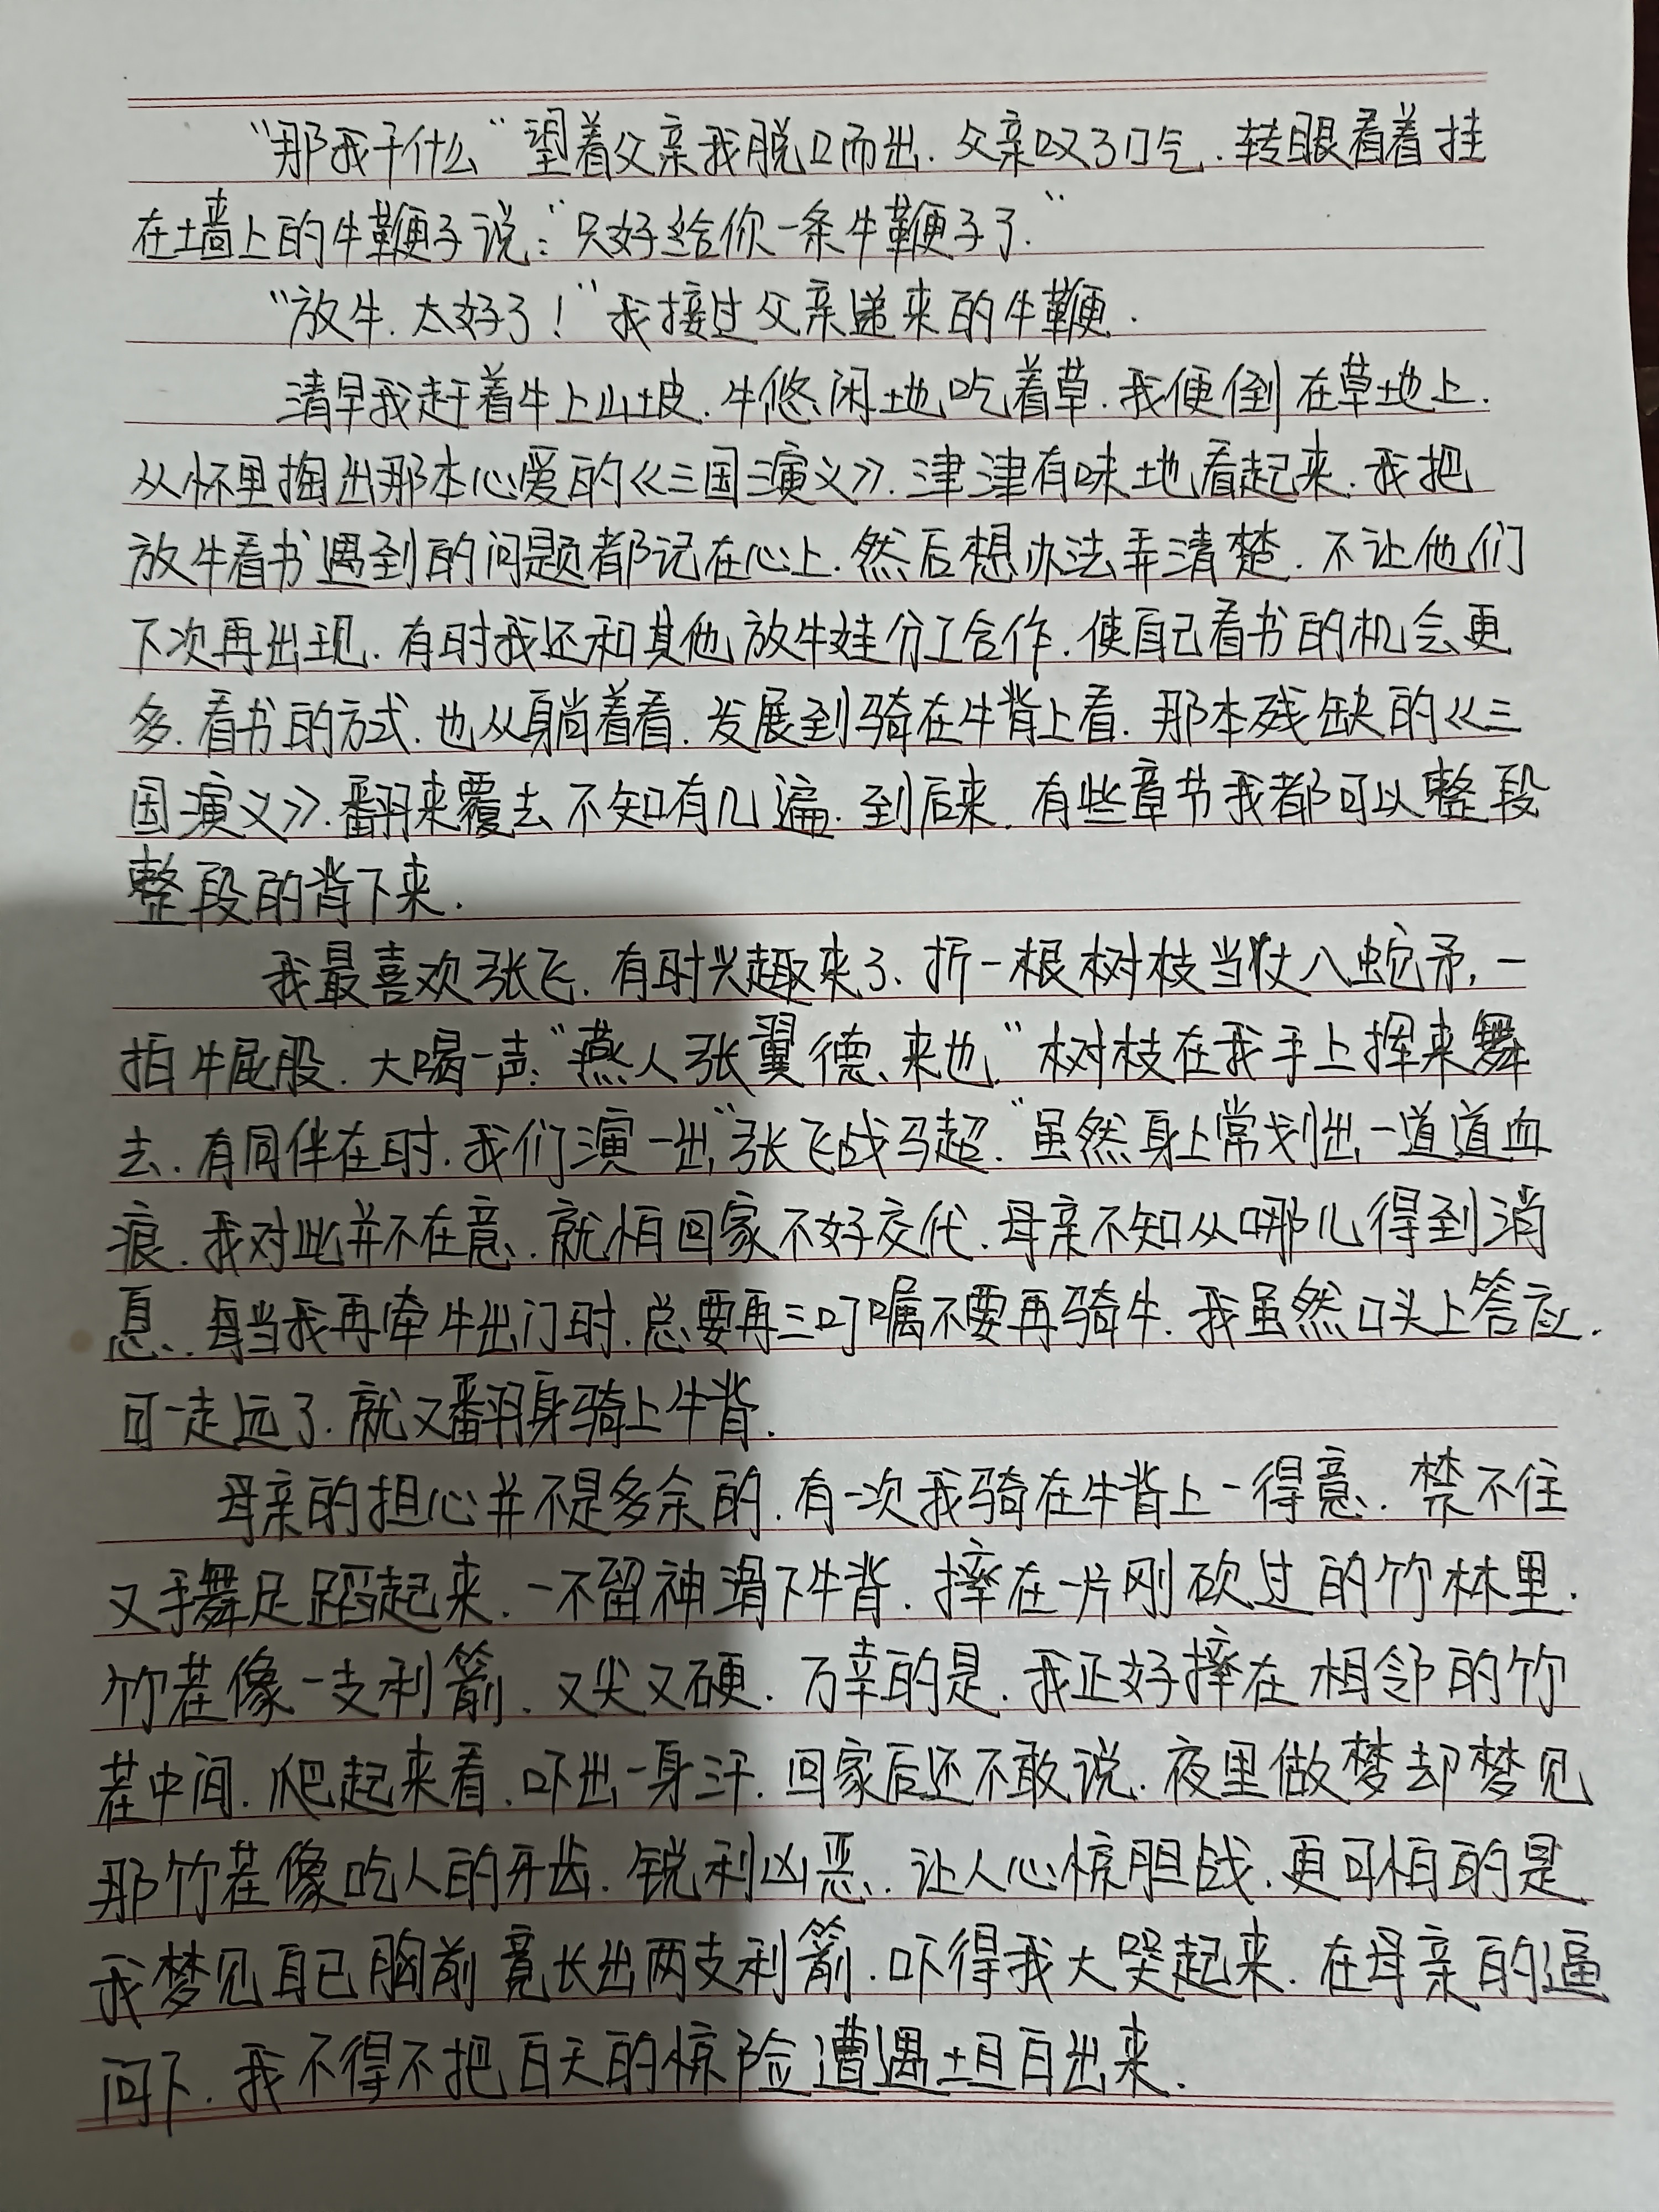 “那我干什么”望着父亲我脱口而出.父亲叹了口气.转眼看着挂
在墙上的牛鞭子说:“只好给你一条牛鞭子了.”
“放牛.太好了!”我接过父亲递来的牛鞭.
清早我赶着牛上山坡.牛悠闲地吃着草.我便倒在草地上.
从怀里掏出那本心爱的《三国演义》.津津有味地看起来.我把
放牛看书遇到的问题都记在心上.然后想办法弄清楚.不让他们
下次再出现.有时我还和其他放牛娃分工合作.使自己看书的机会更
多.看书的方式.也从躺着看.发展到骑在牛背上看.那本残缺的《三
国演义》.翻来覆去不知有几遍.到后来.有些章节我都可以整段
整段的背下来.
我最喜欢张飞.有时兴趣来了、折一根树枝当仗八蛇矛,一
拍牛屁股.大喝一声:“燕人张翼德、来也.”树枝在我手上挥来舞
去.有同伴在时.我们演一出“张飞战马超.”虽然身上常划出一道道血
痕.我对此并不在意.就怕回家不好交代.母亲不知从哪儿得到消
息.每当我再牵牛出门时.总要再三叮嘱不要再骑牛.我虽然口头上答应.
可一走远了.就又翻身骑上牛背.
母亲的担心并不是多余的.有一次我骑在牛背上一得意.禁不住
又手舞足蹈起来.一不留神滑下牛背.摔在一片刚砍过的竹林里.
竹茬像一支利箭.又尖又硬.万幸的是.我正好摔在相邻的竹
茬中间.爬起来看.吓出一身汗.回家后还不敢说.夜里做梦却梦见
那竹茬像吃人的牙齿.锐利凶恶.让人心惊胆战.更可怕的是
我梦见自己胸前竟长出两支利箭.吓得我大哭起来.在母亲的逼
问下.我不得不把白天的惊险遭遇坦白出来.